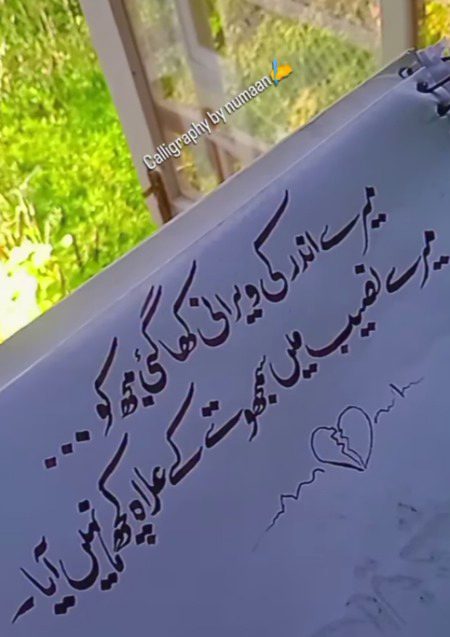 Calligraphy by numaan
میرے اندر کی ویرانی کھا گئی مجھ کو ....
میرے نصیب میں سمجھوتے کے علاوہ کچھ نہیں آیا۔